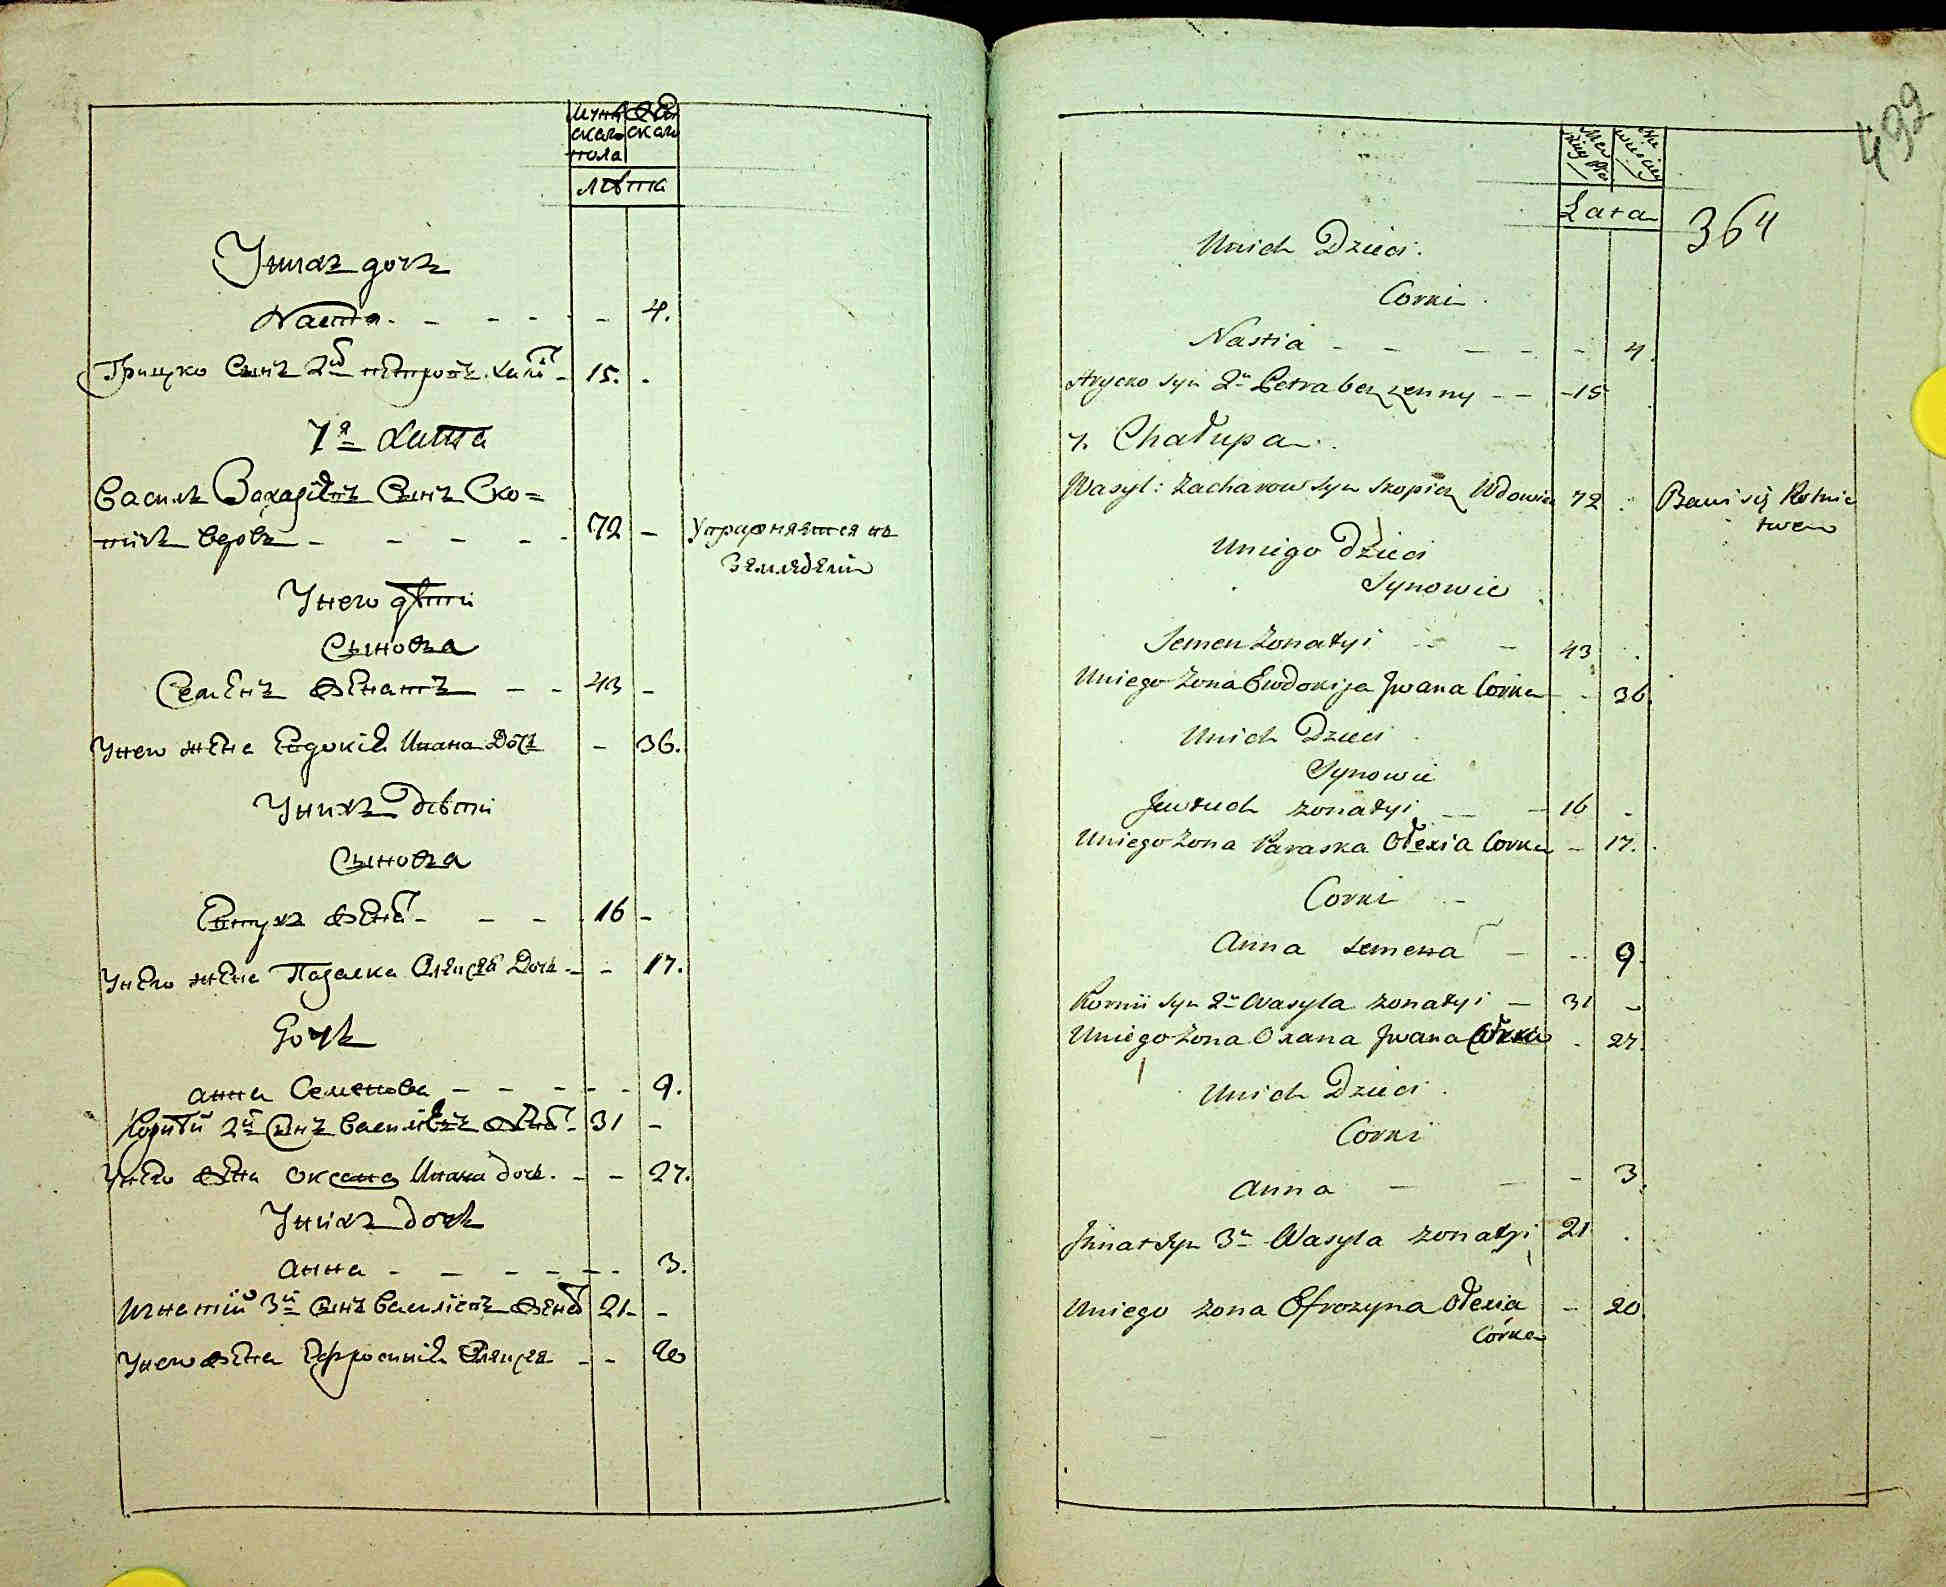 мужескаго пола
женскаго
лѣта
У нихъ дочь
Настя - - - - - 4.
Грицко Сынъ 2й Петровъ холо - 15. -
7я хатта
Василь Захаріевъ Сынъ Ско=
пичъ вдовъ - - - - - 72 -
Упражняется въ
Земледѣліи
У него дѣти
Сыновья
Семенъ женатъ - - 43 -
У него жена Евдокія Ивана Дочь - 36.
У нихъ дѣти
Сыновья
Евтухъ жена - - - 16 -
У него жена Параска Олексѣя Дочь - - 17.
Дочь
анна Семенова - - - - - 9.
Корній 2й Сынъ Василіевъ жена - 31 -
У него жена Оксана Ивана дочь. - - 27.
У нихъ дочь
анна - - - - - - 3.
Игнатій 3й сынъ Василіевъ жена 21 -
У него жена Ефросинія Олексѣя - - 20
499
364
Lata
Unich Dzieci.
Corki.
Nastia - - - - - 4.
Hrycko Syn 2n Petra bez zenny - - - 15
7. Chałupa.
Wasyl: Zacharow Syn Skopicz Wdowiec 72 .
Bawi się Rolnic
twem
Uniego Dzieci
Synowie
Semen Zonatyi - - 43 .
Uniego Zona Ewdokija Jwana Corka - - 36.
Unich Dzieci
Synowie
Jewtuch zonatyi - - - 16 -
Uniego Zona Paraska Ołexia Corka - 17.
Corki -
Anna Semena - - 9.
Kornii Syn 2n Wasyla zonatyi - 31 -
Uniego Zona Oxana Jwana Corka - 27.
Unich Dzieci.
Corki
Anna - - - 3.
Ihnat Syn 3n Wasyla zonatyi 21 .
Uniego zona Efrozyna Ołexia - 20
Córka